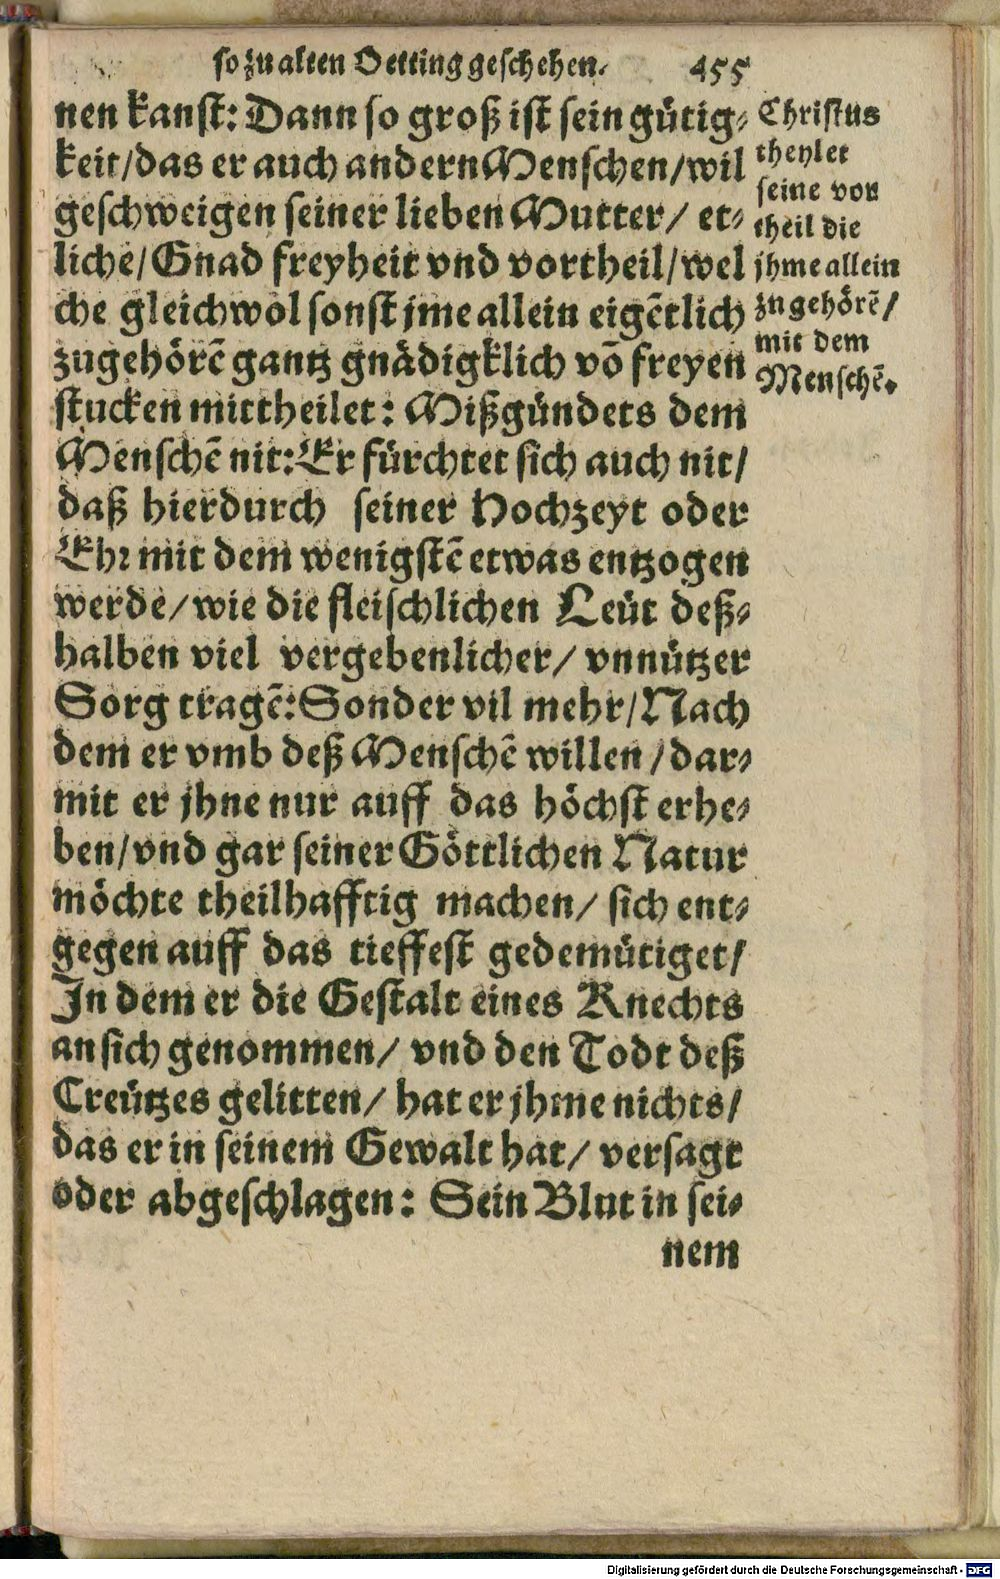 so zu alten Oetting geschehen. 455
nen kanst: Dann so groß ist sein gütig-
keit/das er auch andern Menschen/wil
geschweigen seiner lieben Mutter/ et-
liche/Gnad freyheit vnd vortheil/wel
che gleichwol sonst jme allein eigẽtlich
zugehörẽ gantz gnädigklich võ freyen
stucken mittheilet: Mißgündets dem
Menschẽ nit: Er fürchtet sich auch nit/
daß hierdurch seiner Hochzeyt oder
Ehr mit dem wenigstẽ etwas entzogen
werde/wie die fleischlichen Leüt deß-
halben viel vergebenlicher/ vnnützer
Sorg tragẽ: Sonder vil mehr/Nach
dem er vmb deß Menschẽ willen/dar-
mit er jhne nur auff das höchst erhe-
ben/vnd gar seiner Göttlichen Natur
möchte theilhafftig machen/ sich ent-
gegen auff das tieffest gedemütiget/
In dem er die Gestalt eines Knechts
an sich genommen/ vnd den Todt deß
Creützes gelitten/ hat er jhme nichts/
das er in seinem Gewalt hat/ versagt
oder abgeschlagen: Sein Blut in sei-
nem
Christus
theylet
seine vor
theil die
jhme allein
zugehörẽ/
mit dem
Menschẽ.
Digitalisierung gefördert durch die Deutsche Forschungsgemeinschaft - DFG